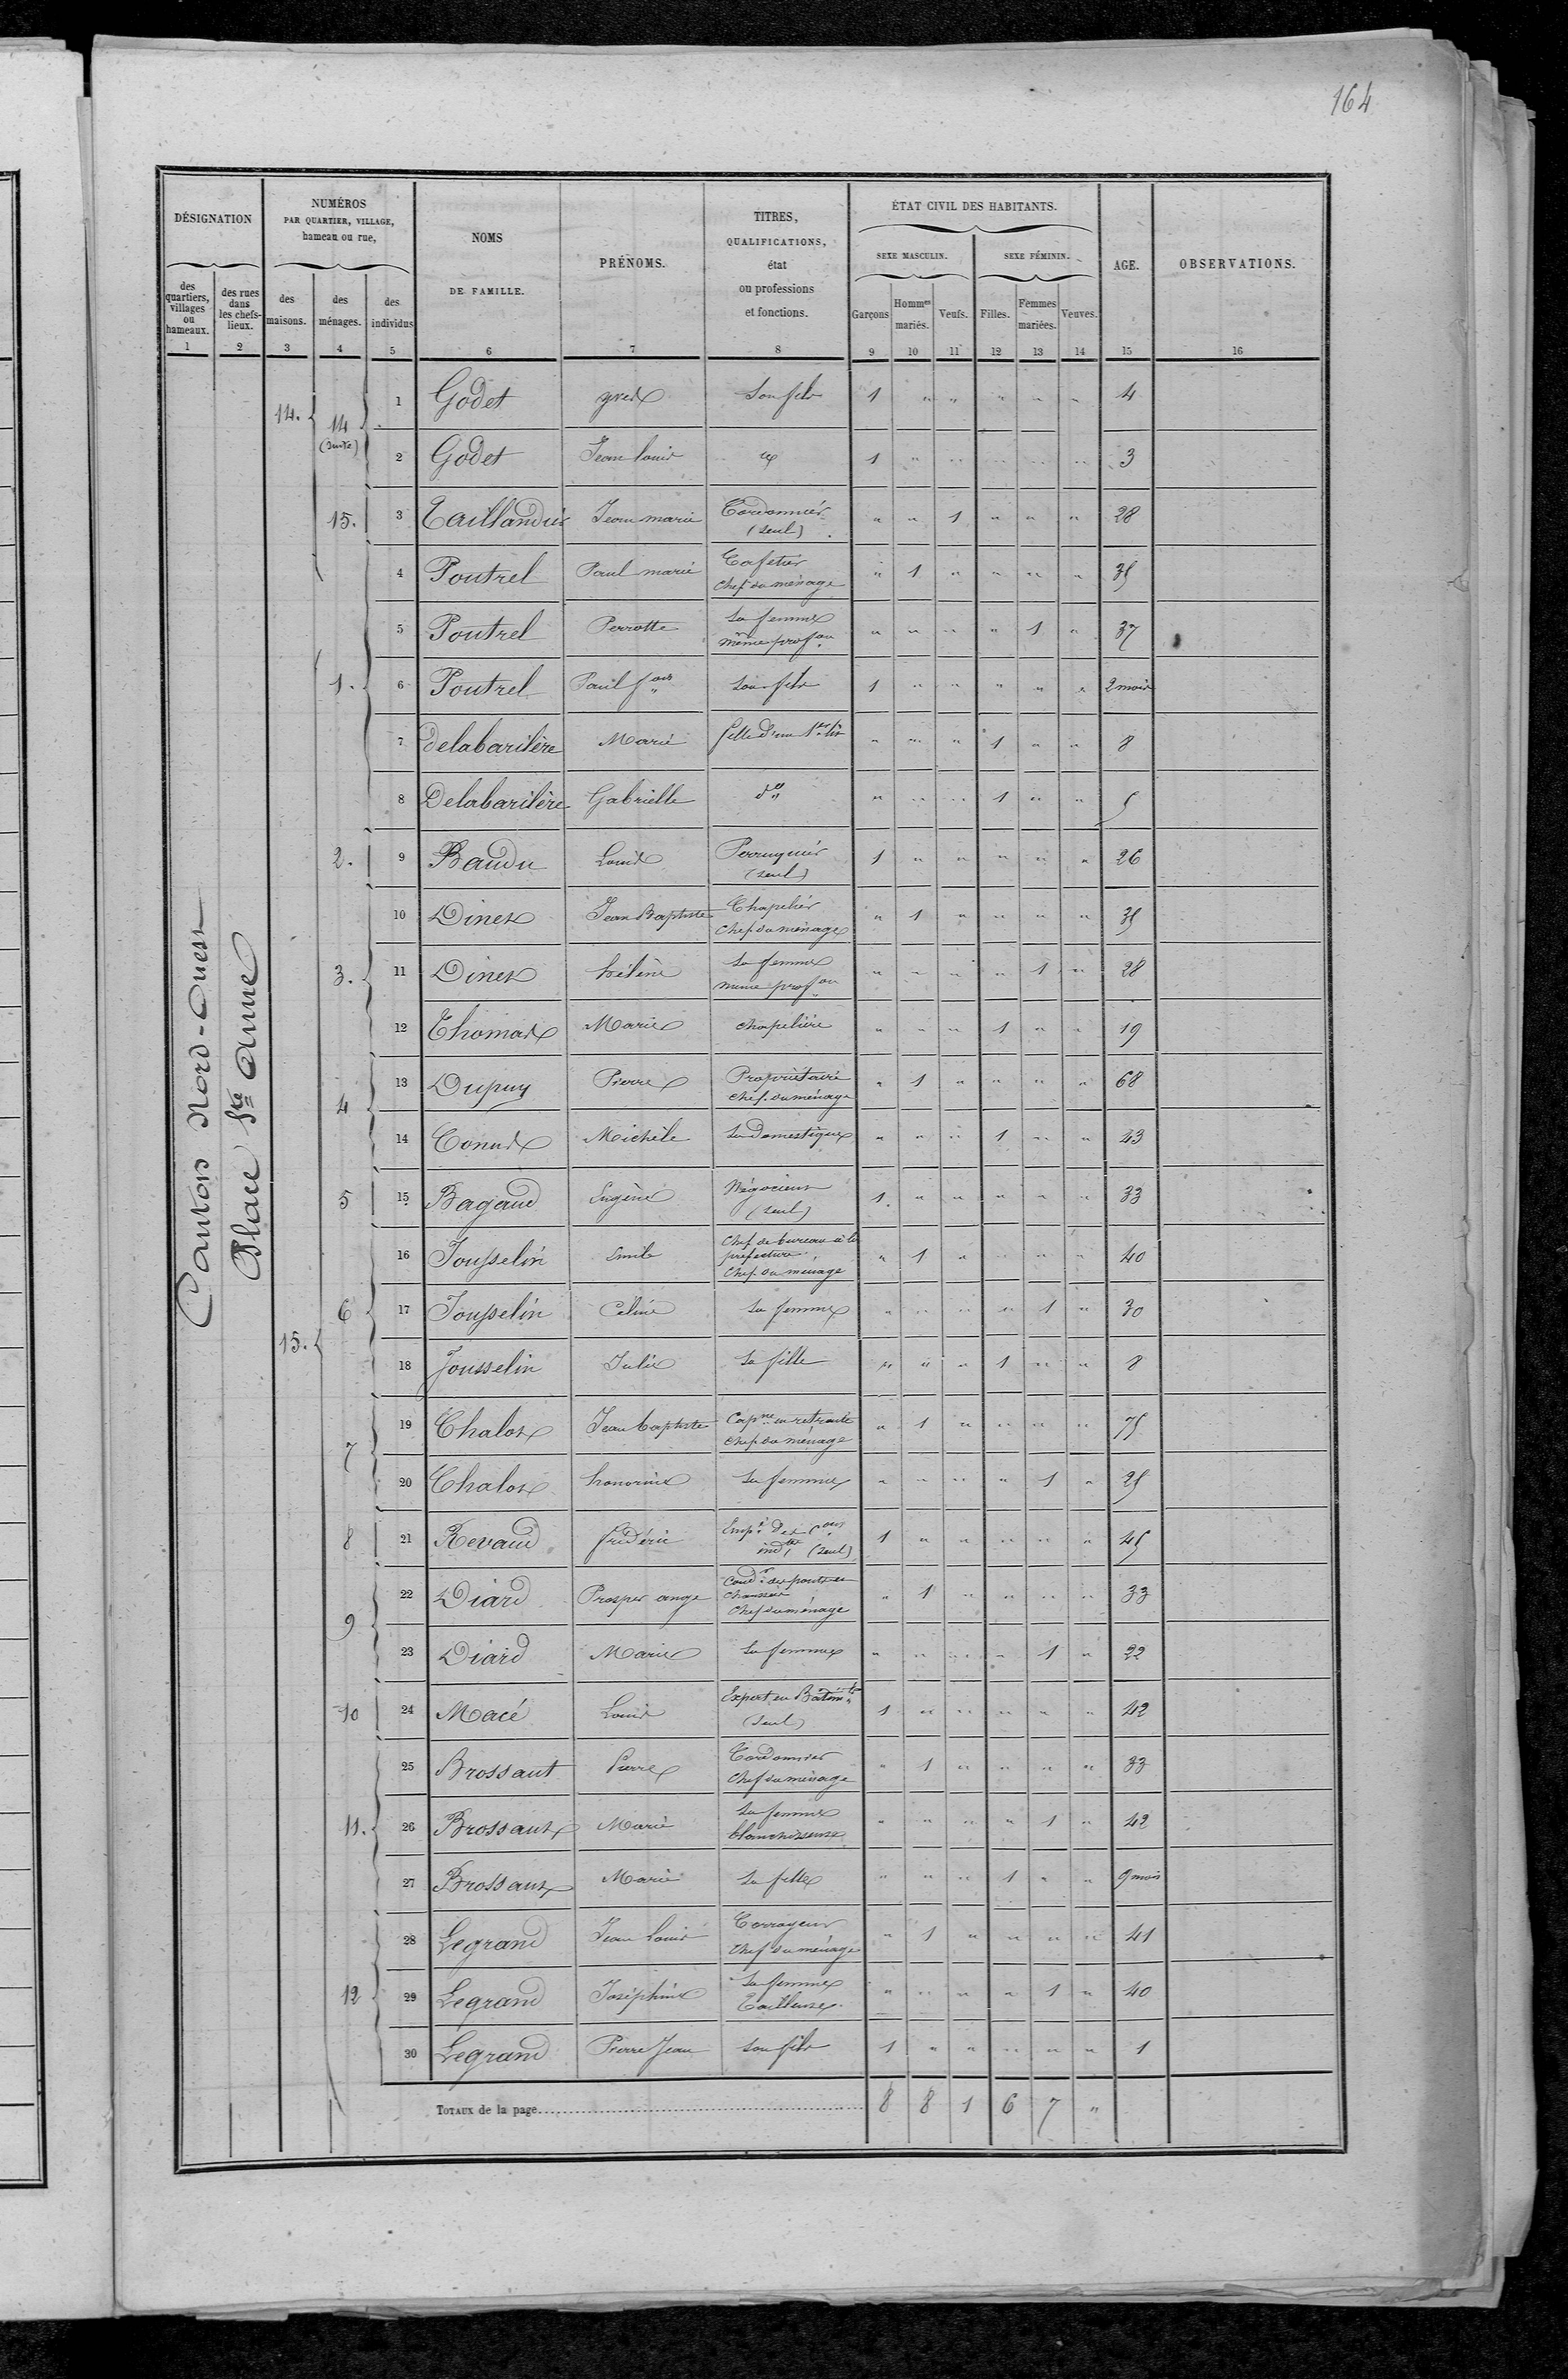 164
DÉSIGNATION
NUMÉROS
PAR QUARTIER, VILLAGE,
hameau ou rue,
NOMS
DE FAMILLE.
PRÉNOMS.
TITRES,
QUALIFICATIONS,
état
ou professions
et fonctions.
ÉTAT CIVIL DES HABITANTS.
SEXE MASCULIN.
SEXE FÉMININ.
AGE.
OBSERVATIONS.
des quartiers, villages ou hameaux.
des rues dans les chefs-lieux.
des maisons.
des ménages.
des individus
Garçons
Hommes mariés.
Veufs.
Filles.
Femmes mariées.
Veuves.
1 2 3 4 5 6 7 8 9 10 11 12 13 14 15 16
Canton Nord-Ouest
Place Ste Anne
14. 14 (suite) 1 Godet yves Son fils 1 " " " " " 4
2 Godet Jean louis 1 " " " " " 3
15. 3 Taillandier Jean marie Cordonnier (seul) " " 1 " " " 28
15. 1. 4 Poutrel Paul marie Cafetier Chef du ménage " 1 " " " " 35
5 Poutrel Perrotte Sa femme même profon " " " " 1 " 37
6 Poutrel Paul fois Son fils 1 " " " " " 2 mois
7 delabarilère Marie fille d'un 1er lit " " " 1 " " 8
8 Delabarilère Gabrielle do " " " 1 " " 5
2. 9 Baudu Louis Perruquier (seul) 1 " " " " " 26
3. 10 Dinet Jean Baptiste Chapelier Chef du ménage " 1 " " " " 35
11 Dinet hélène Sa femme même profon " " " " 1 " 28
12 Thomas Marie chapelière " " " 1 " " 19
4 13 Dupuy Pierre Propriétaire chef du ménage " 1 " " " " 68
14 Michèle Sa domestique " " " 1 " " 43
5 15 Bagaud Eugène Négociant (seul) 1 " " " " " 33
6 16 Jousselin Emile Chef de bureau à la préfecture Chef du ménage " 1 " " " " 40
17 Jousselin Céline Sa femme " " " " 1 " 30
18 Jousselin Julie Sa fille " " " 1 " " 8
7 19 Chalot Jean baptiste Capne en retraite chef du ménage " 1 " " " " 75
20 Chalot honorine Sa femme " " " " 1 " 25
8 21 Revaud frédéric Empé des Cons indtes (seul) 1 " " " " " 45
9 22 Diard Prosper ange Condr des ponts et Chaussées Chef du ménage " 1 " " " " 33
23 Diard Marie Sa femme " " " " 1 " 22
10 24 Macé Louis Expert en Batimts (seul) 1 " " " " " 42
11. 25 Brossaut Pierre Cordonnier Chef du ménage " 1 " " " " 33
26 Brossaut Marie Sa femme blanchisseuse " " " " 1 " 42
27 Brossaut Marie Sa fille " " " 1 " " 9 mois
12 28 Legrand Jean Louis Corroyeur Chef du ménage " 1 " " " " 41
29 Legrand Joséphine Sa femme Tailleuse " " " " 1 " 40
30 Legrand Pierre Jean Son fils 1 " " " " " 1
TOTAUX de la page 8 8 1 6 7 "